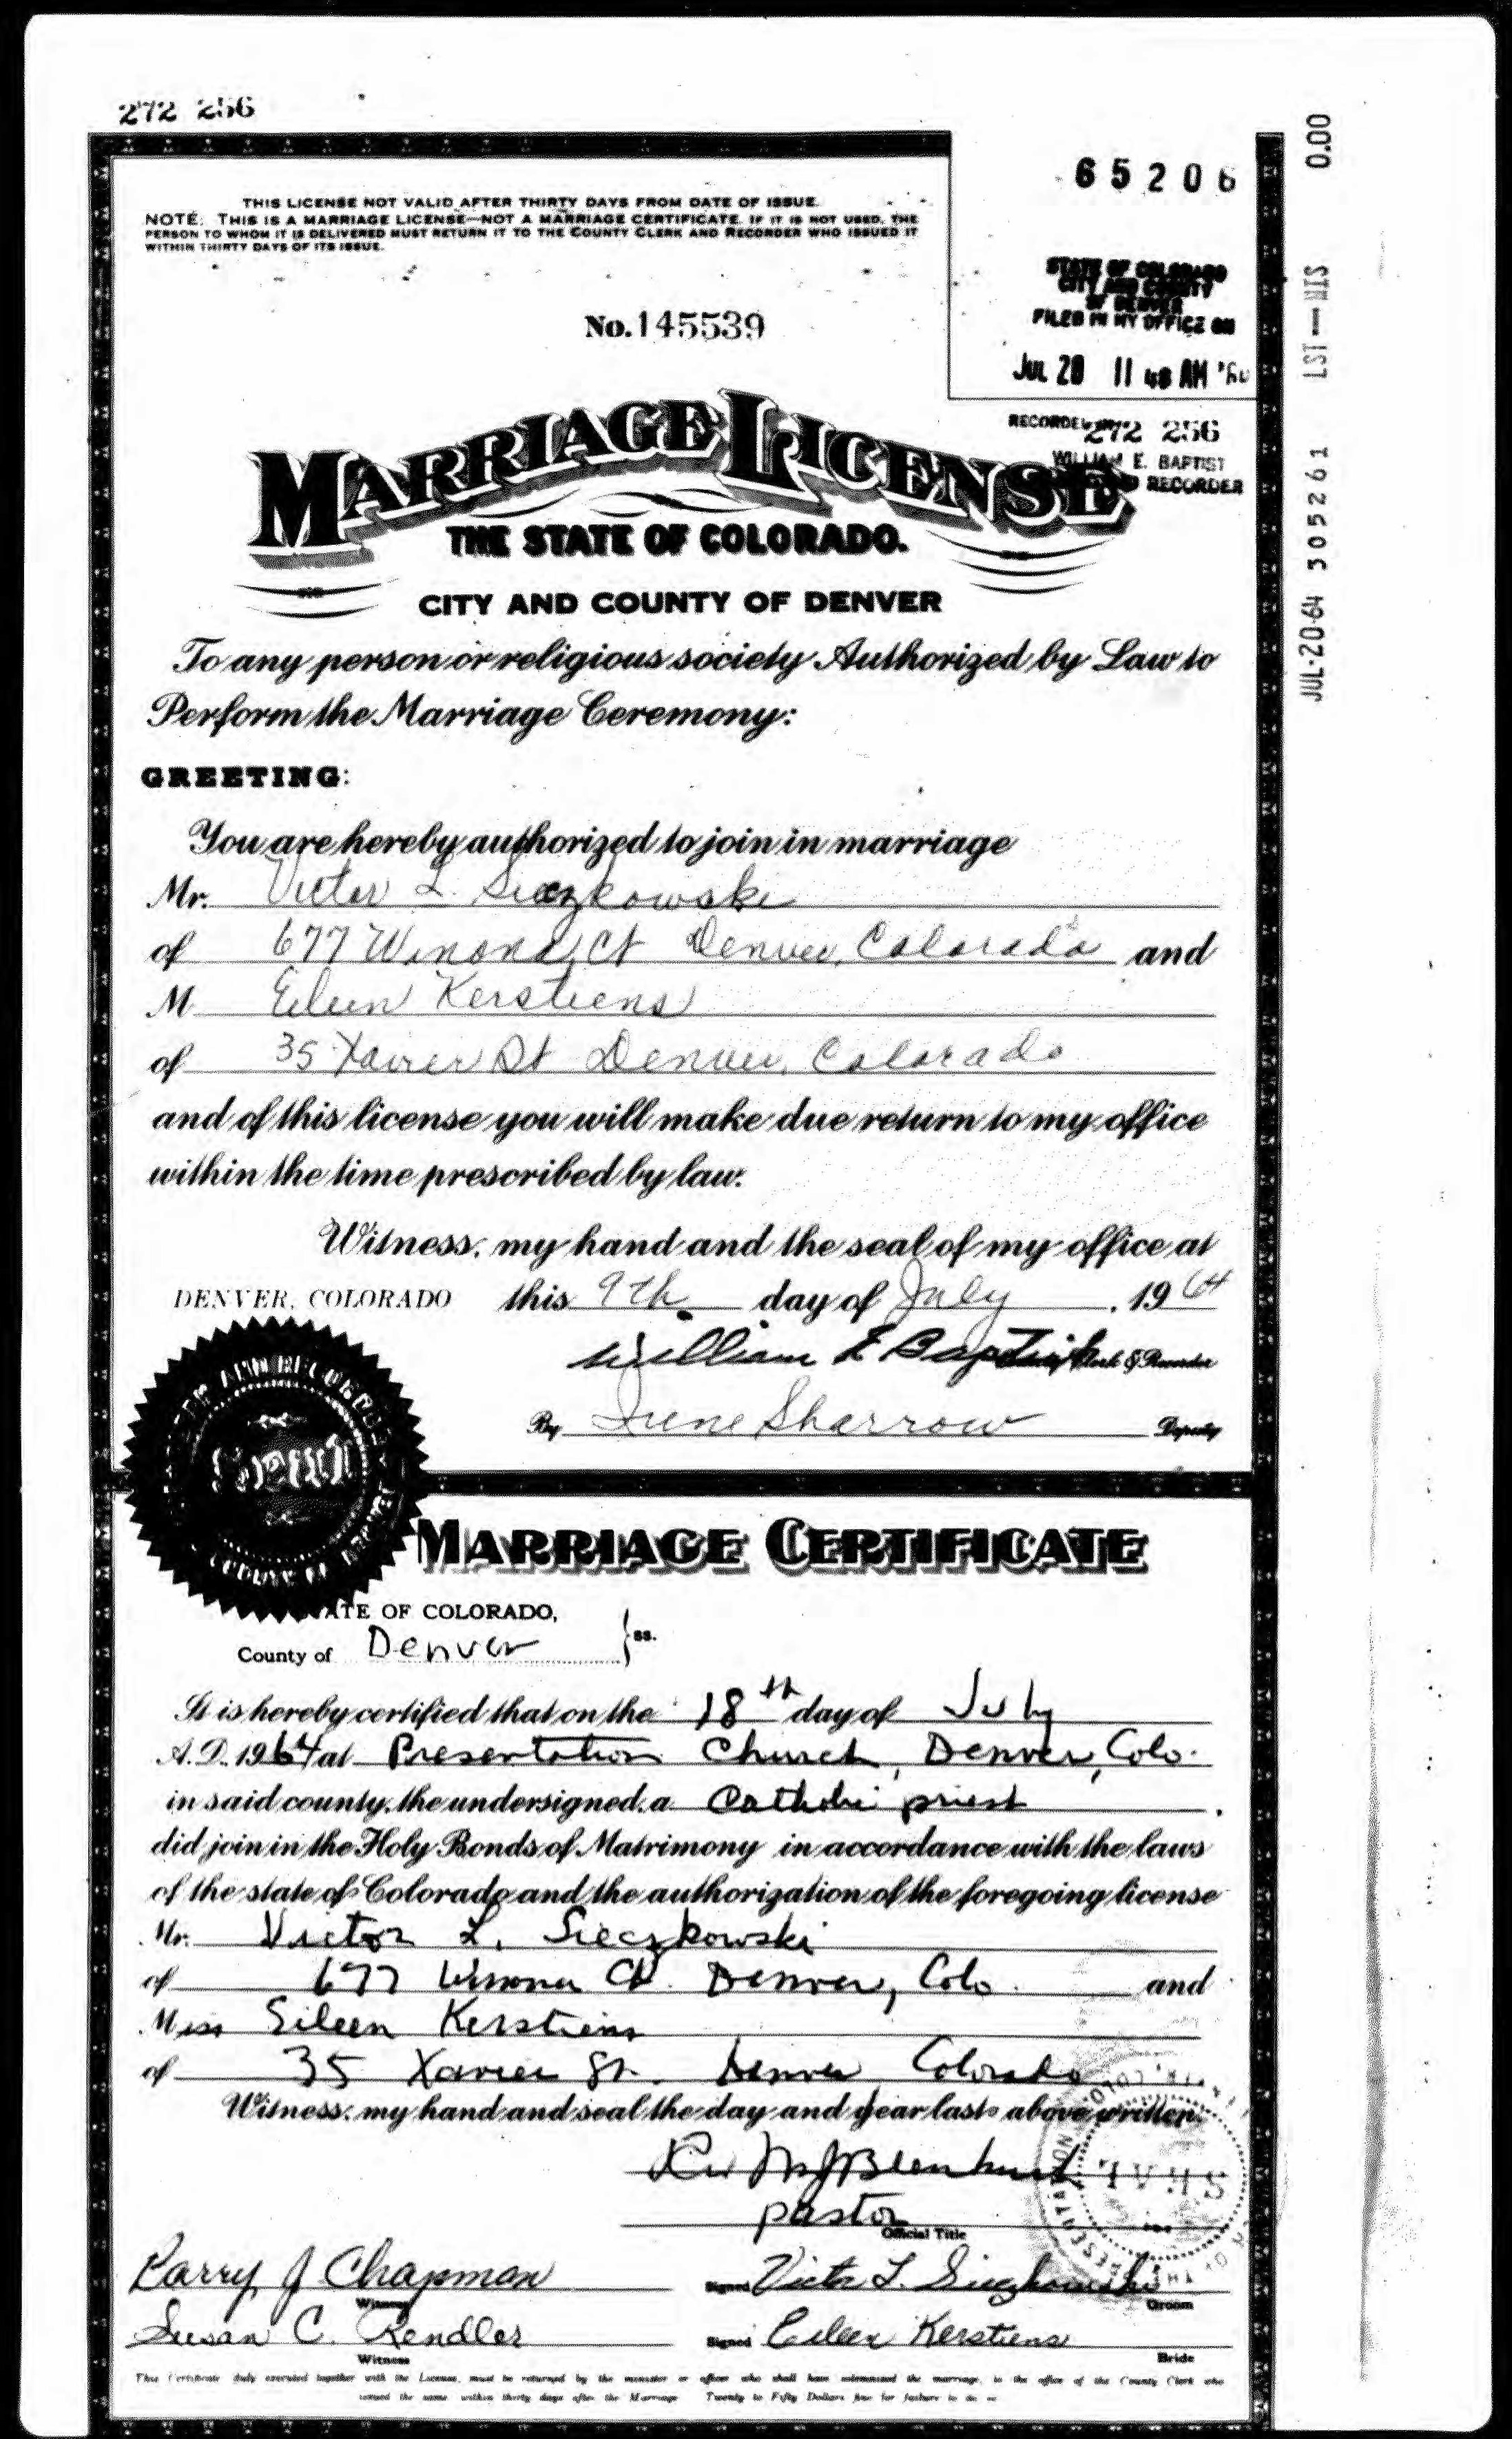 272 256
65206
0.00
THIS LICENSE NOT VALID AFTER THIRTY DAYS FROM DATE OF ISSUE.
NOTE: THIS IS A MARRIAGE LICENSE—NOT A MARRIAGE CERTIFICATE. IF IT IS NOT USED, THE
PERSON TO WHOM IT IS DELIVERED MUST RETURN IT TO THE COUNTY CLERK AND RECORDER WHO ISSUED IT
WITHIN THIRTY DAYS OF ITS ISSUE.
STATE OF COLORADO
CITY AND COUNTY
OF DENVER
FILED IN MY OFFICE ON
JUL 20 11 48 AM
No. 145539
RECORDED 272 256
WILLIAM E. BAPTIST
RECORDER
JUL-20-64 305261 LST—MIS
MARRIAGE LICENSE
THE STATE OF COLORADO.
CITY AND COUNTY OF DENVER
To any person or religious society Authorized by Law to
Perform the Marriage Ceremony:
GREETING:
You are hereby authorized to join in marriage
Mr. Victor L. Sieczkowski
of 677 Winona Ct Denver, Colorado and
M Eileen Kerstiens
of 35 Xavier St Denver, Colorado
and of this license you will make due return to my office
within the time prescribed by law.
Witness, my hand and the seal of my office at
DENVER, COLORADO this 9th day of July, 1964
William E Baptist Clerk & Recorder
By Irene Sharrow Deputy
MARRIAGE CERTIFICATE
STATE OF COLORADO,
County of Denver } ss.
It is hereby certified that on the 18th day of July
A.D. 1964 at Presentation Church, Denver, Colo.
in said county, the undersigned, a Catholic priest
did join in the Holy Bonds of Matrimony in accordance with the laws
of the state of Colorado and the authorization of the foregoing license
Mr. Victor L. Sieczkowski
of 677 Winona Ct. Denver, Colo. and
Miss Eileen Kerstiens
of 35 Xavier St. Denver Colorado
Witness, my hand and seal the day and year last above written.
SEAL
pastor
Official Title
Larry J Chapman
Witness
Signed Victor L. Sieczkowski
Groom
Susan C. Rendler
Witness
Signed Eileen Kerstiens
Bride
This Certificate duly executed together with the License, must be returned by the minister or officer who shall have solemnized the marriage, to the office of the County Clerk who
issued the same within thirty days after the Marriage Twenty to Fifty Dollars fine for failure to do so